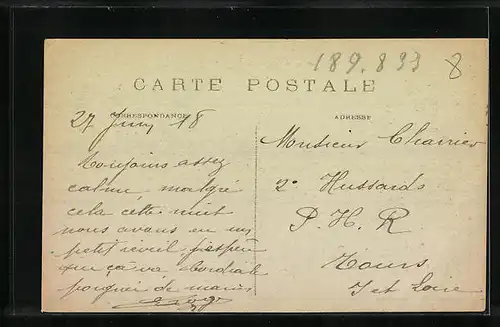 189.833 8
CARTE POSTALE
CORRESPONDANCE
ADRESSE
27 Juin 18
Toujours assez
calme, malgré
cela cette nuit
nous avons eu un
petit réveil j'espère
que ça va Cordiale
poignée de mains
Monsieur Charrier
2e Hussards
P. H. R
Tours
I et Loire